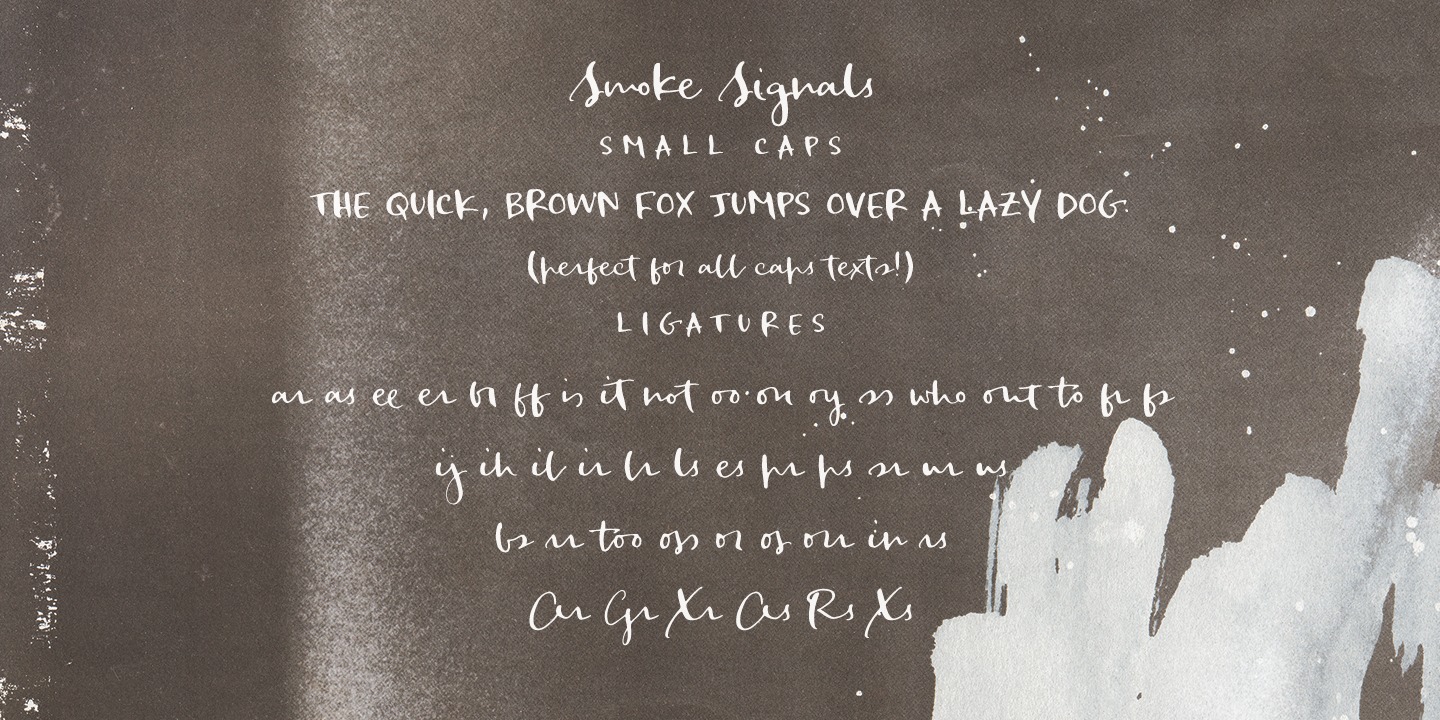 Smoke Signals
SMALL CAPS
THE QUICK, BROWN FOX JUMPS OVER A LAZY DOG.
(perfect for all caps texts!)
LIGATURES
ar as ee er ff is it not oo on oy ss who out to fr fs
ij ih il ir lr ls es pr ps sr ur us
bs too or os our in rs
Car Gr Xr Cas Rs Xs